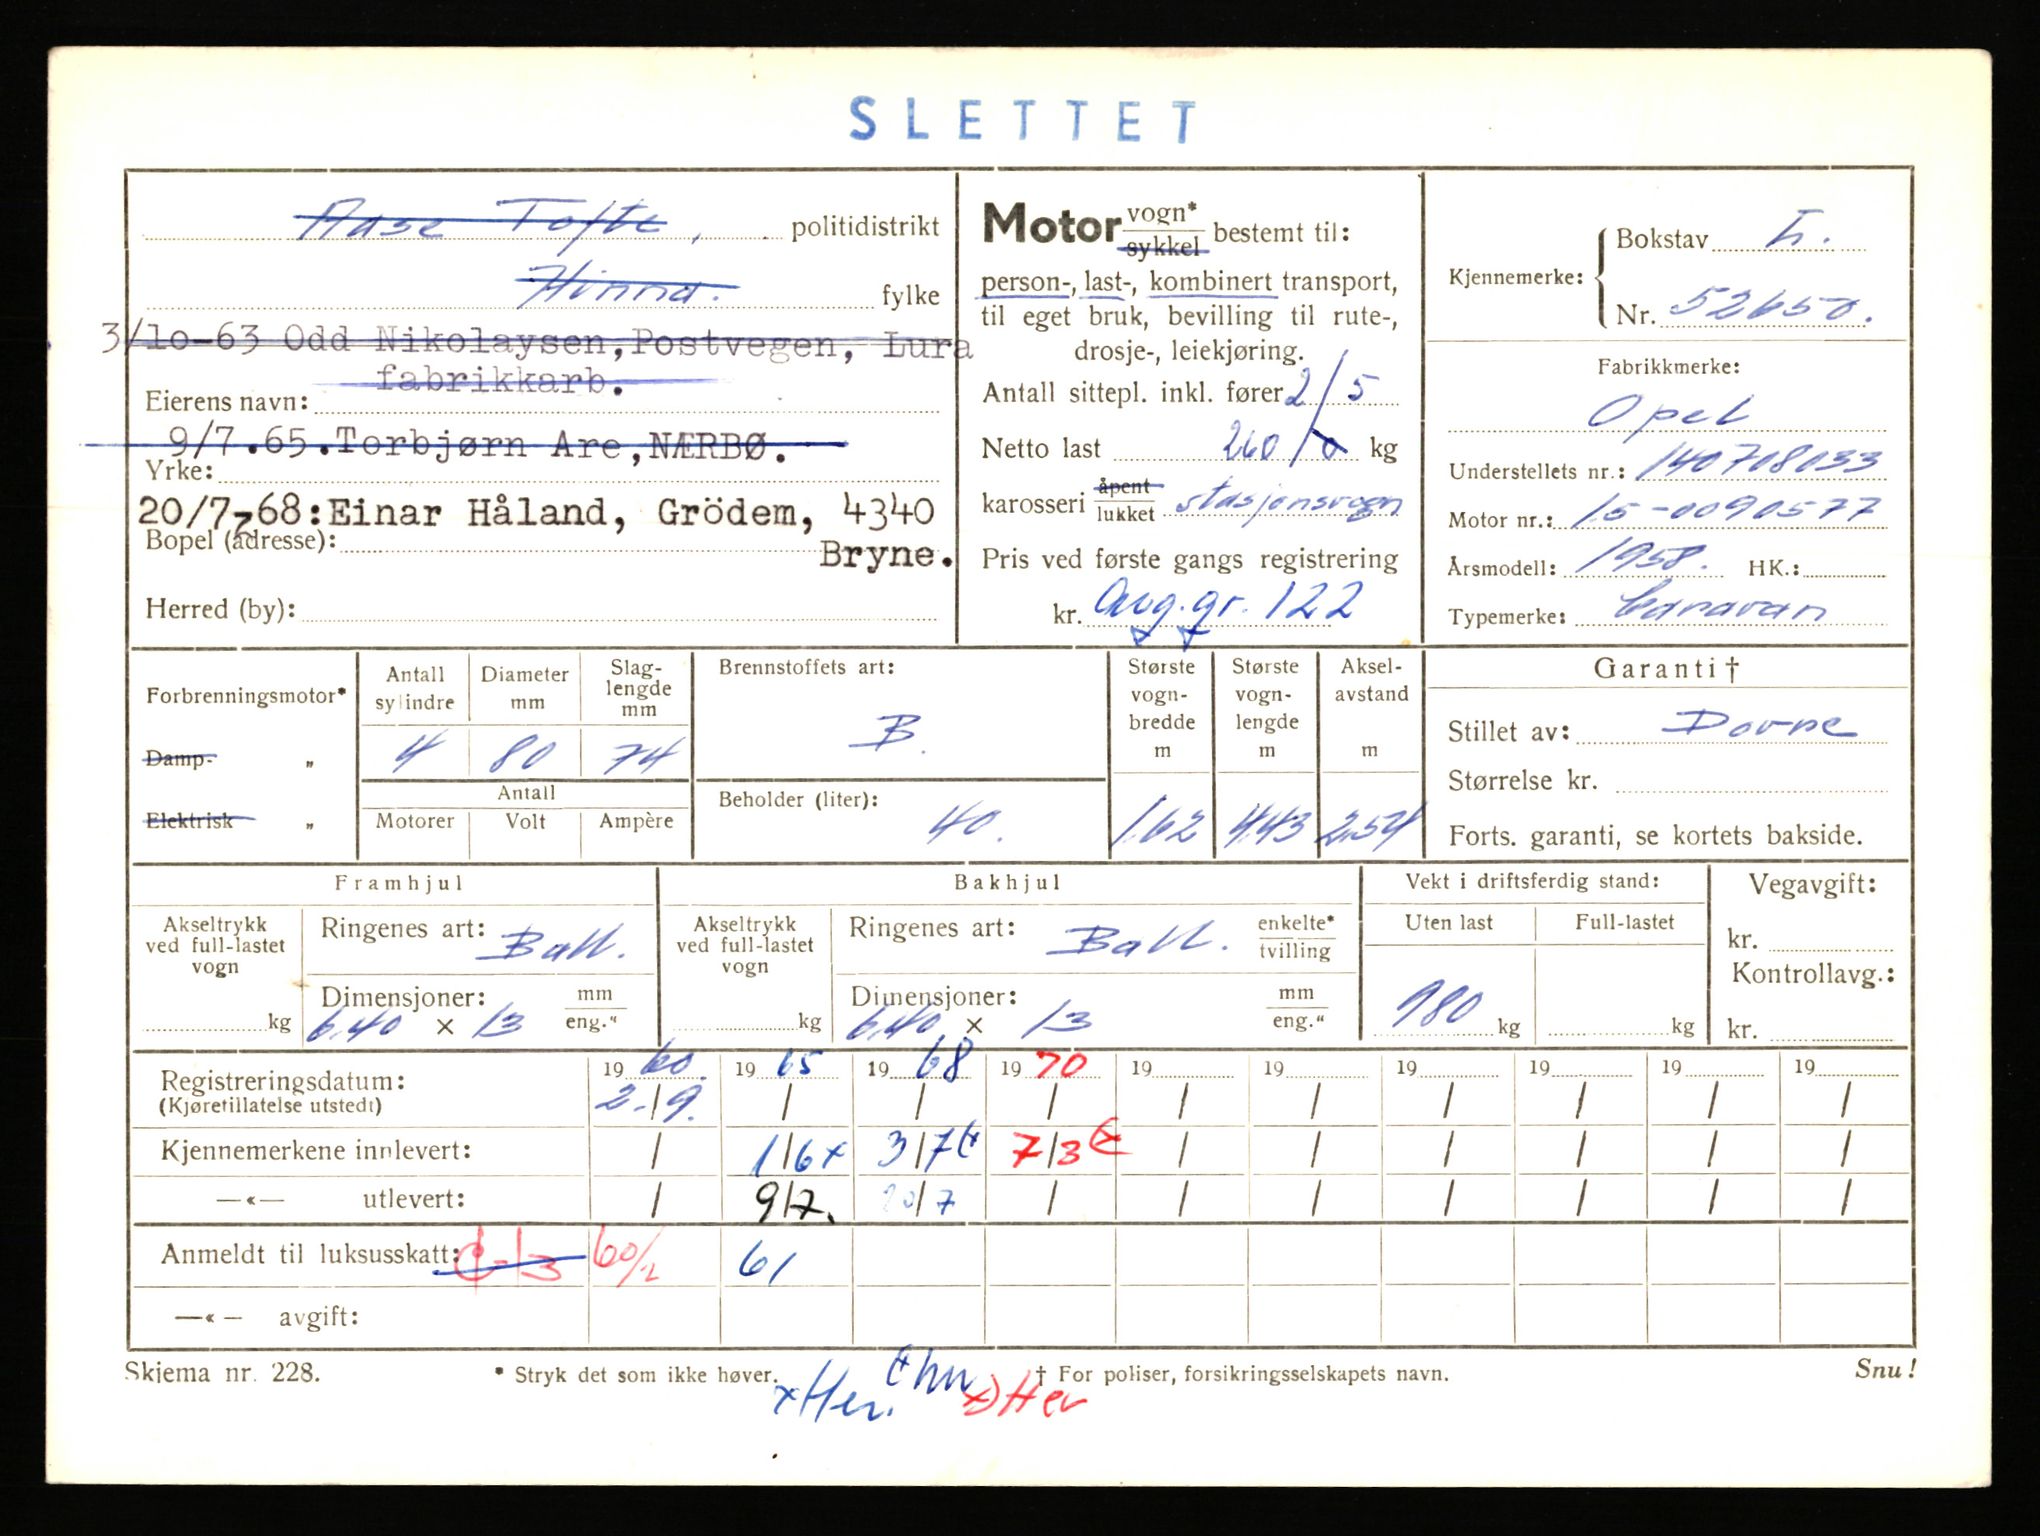 SLETTET
Aase Tofte, politidistrikt
Hinna. fylke
3/10-63 Odd Nikolaysen,Postvegen, Lura
fabrikkarb.
Eierens navn:
9/7.65.Torbjørn Are,NÆRBØ.
Yrke:
20/7-68:Einar Håland, Grödem, 4340
Bopel (adresse):
Bryne.
Herred (by):
Motor vogn* sykkel bestemt til:
person-, last-, kombinert transport,
til eget bruk, bevilling til rute-,
drosje-, leiekjøring.
Antall sittepl. inkl. fører 2/5
Netto last 260/0 kg
karosseri åpent lukket stasjonsvogn
Pris ved første gangs registrering
kr. Avg.gr. 122
Kjennemerke: Bokstav L.
Nr. 52650.
Fabrikkmerke:
Opel
Understellets nr.: 140708033
Motor nr.: 15-0090577
Årsmodell: 1958. HK.:
Typemerke: Caravan
Forbrenningsmotor*
Damp- „
Elektrisk „
Antall sylindre
Diameter mm
Slag-lengde mm
4 80 74
Antall
Motorer Volt Ampère
Brennstoffets art:
B.
Beholder (liter):
40.
Største vogn-bredde m
1.62
Største vogn-lengde m
4.43
Aksel-avstand m
2.54
Garanti †
Stillet av: Dovre
Størrelse kr.
Forts. garanti, se kortets bakside.
Framhjul
Akseltrykk ved full-lastet vogn
kg
Ringenes art: Ball.
Dimensjoner: mm eng."
6.40 x 13
Bakhjul
Akseltrykk ved full-lastet vogn
kg
Ringenes art: Ball. enkelte* tvilling
Dimensjoner: mm eng."
6.40 x 13
Vekt i driftsferdig stand:
Uten last Full-lastet
980 kg kg
Vegavgift:
kr.
Kontrollavg.:
kr.
19 60. 19 65 19 68 19 70 19 19 19 19 19 19
Registreringsdatum:
(Kjøretillatelse utstedt)
2/9. / / / / / / / / /
Kjennemerkene innlevert: / 1/6 x 3/7 7/3 / / / / / /
—«— utlevert: / 9/7. 20/7 / / / / / / /
Anmeldt til luksusskatt: 60/2 61
—«— avgift:
Skjema nr. 228. * Stryk det som ikke høver. † For poliser, forsikringsselskapets navn. Snu!
x Her. x) Her